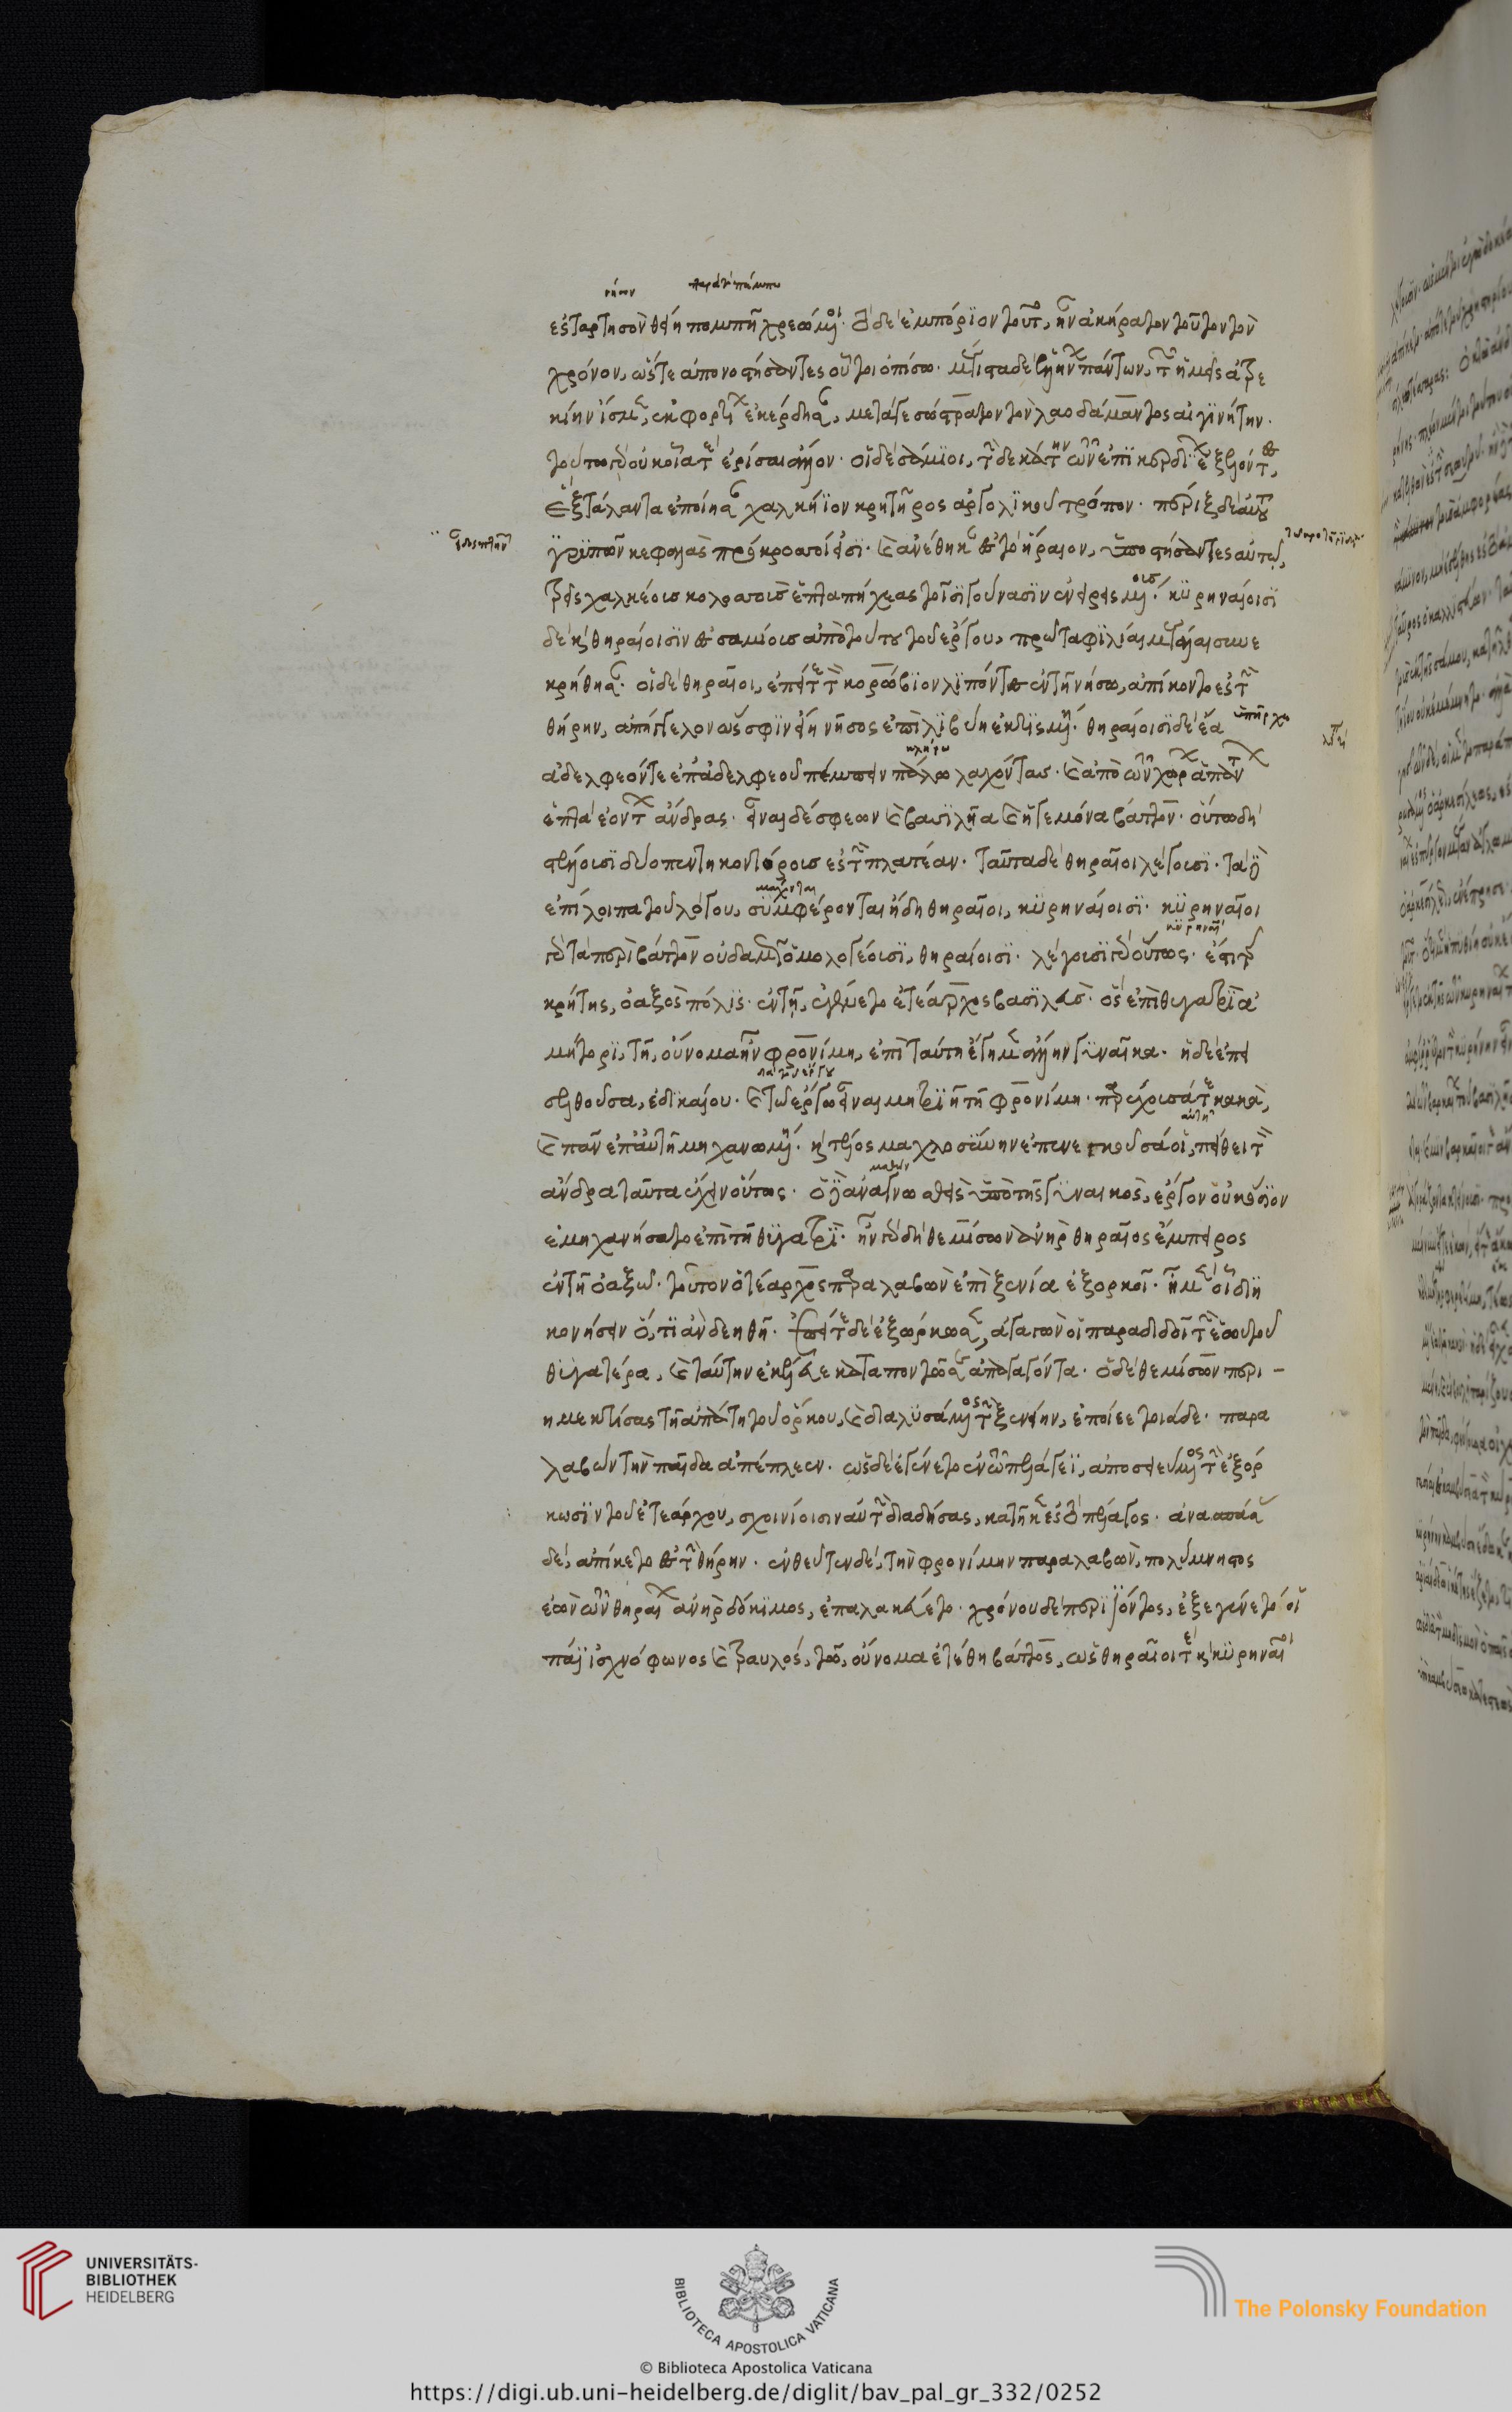 ἐς ταρτησσὸν θείη πομπῆ χρεώμενοι. τὸ δὲ ἐμπόριον τοῦτο, ἦν ἀκήρατον τοῦτον τὸν
χρόνον, ὥστε ἀπονοστήσαντες οὗτοι ὀπίσω. μέγιστα δὴ ἑλλήνων πάντων, τῶν ἡμεῖς ἀτρε
κίην ἴσμεν, ἐκ φορτίων ἐκέρδησαν, μετά γε σώστρατον τὸν λαοδάμαντος αἰγινήτην.
τούτω γὰρ οὐκ οἷά τε ἐρίσαι ἄλλον. οἱ δὲ σάμιοι, τὴν δεκάτην τῶν ἐπικερδίων ἐξελόντες,
ἓξ τάλαντα ἐποίησαν χαλκήϊον κρητῆρος ἀργολικοῦ τρόπον. πέριξ δὲ αὐτοῦ
γρυπῶν κεφαλαὶ πρόκροσσοί εἰσι. καὶ ἀνέθηκαν ἐς τὸ ἥραιον, ὑποστήσαντες αὐτῷ,
τρεῖς χαλκέους κολοσσοὺς ἑπταπήχεας τοῖσι γούνασιν ἐρηρεισμένους. κυρηναίοισι
δὲ καὶ θηραίοισιν ἐς σαμίους ἀπὸ τούτου τοῦ ἔργου, πρῶτα φιλίαι μεγάλαι συνε
κρήθησαν. οἱ δὲ θηραῖοι, ἐπεί τε τὸν κορώβιον λιπόντες ἐν τῇ νήσω, ἀπίκοντο ἐς τὴν
θήρην, ἀπήγγελον ὥς σφιν εἴη νῆσος ἐπὶ λιβύη ἐκτισμένη. θηραίοισι δὲ ἕα
ἀδελφεόν τε ἐπ' ἀδελφεοῦ πέμπειν πάλω λαχόντας. καὶ ἀπὸ τῶν χώρων ἁπάντων
ἑπτὰ ἐόντων ἄνδρας. εἶναι δέ σφεων καὶ βασιλῆα καὶ ἡγεμόνα βάττον. οὕτω δὴ
στέλλουσι δύο πεντηκοντόρους ἐς τὴν πλατέαν. ταῦτα δὲ θηραῖοι λέγουσι. τὰ δ'
ἐπίλοιπα τοῦ λόγου, συμφέρονται ἤδη θηραῖοι, κυρηναίοισι. κυρηναῖοι
γὰρ τὰ περὶ βάττον οὐδαμῶς ὁμολογέουσι, θηραίοισι. λέγουσι γὰρ οὕτως. ἔστι τῆς
κρήτης, ὀαξὸς πόλις. ἐν τῇ, ἐγένετο ἐτέαρχος βασιλεύς. ὃς ἐπὶ θυγατρὶ ἀ
μήτορι, τῇ, οὔνομα ἦν φρονίμη, ἐπὶ ταύτη ἔγημεν ἄλλην γυναῖκα. ἡ δὲ ἐπε
σελθοῦσα, ἐδικαίου. καὶ τῷ ἔργω εἶναι μητρυιὴ τῇ φρονίμη. παρέχουσά τε κακὰ,
καὶ πᾶν ἐπ' αὐτῇ μηχανωμένη. καὶ τέλος μαχλοσύνην ἐπενεγκοῦσά οἱ, πείθει τὸν
ἄνδρα ταῦτα ἔχειν οὕτως. ὁ δ' ἀναγνωσθεὶς ὑπὸ τῆς γυναικὸς, ἔργον οὐκ ὅσιον
ἐμηχανήσατο ἐπὶ τῇ θυγατρί. ἦν γὰρ δὴ θεμίσων ἀνὴρ θηραῖος ἔμπορος
ἐν τῇ ὀαξῷ. τοῦτον ὁ ἐτέαρχος παραλαβὼν ἐπὶ ξενία ἐξορκοῖ. ἦ μέν οἱ δι
κονήσειν ὅ,τι ἂν δεηθῇ. ἐπεί τε δὲ ἐξώρκωσεν, ἀγαγών οἱ παραδιδοῖ τὴν ἑωυτοῦ
θυγατέρα, καὶ ταύτην ἐκέλευε καταποντῶσαι ἀπαγαγόντα. ὁ δὲ θεμίσων περι-
ημεκτίσας τῇ ἀπάτη τοῦ ὅρκου, καὶ διαλυσάμενος τὴν ξενίην, ἐποίεε τοιάδε. παρα
λαβὼν τὴν παῖδα ἀπέπλεεν. ὡς δὲ ἐγένετο ἐν τῷ πελάγεϊ, ἀποσιεύμενος τὴν ἐξόρ
κωσιν τοῦ ἐτεάρχου, σχοινίοισιν αὐτὴν διαδήσας, κατῆκεν ἐς τὸ πέλαγος. ἀνασπάσας
δὲ, ἀπίκετο ἐς τὴν θήρην. ἐνθεῦτεν δὲ, τὴν φρονίμην παραλαβὼν, πολύμνηστος
ἐὼν τῶν θηραίων ἀνὴρ δόκιμος, ἐπαλλακεύετο. χρόνου δὲ περιϊόντος, ἐξεγένετό οἱ
πάϊς ἰσχνόφωνος καὶ τραυλός, τῷ, οὔνομα ἐτέθη βάττος, ὡς θηραῖοί τε καὶ κυρηναῖοι
UNIVERSITÄTS-
BIBLIOTHEK
HEIDELBERG
BIBLIOTECA APOSTOLICA VATICANA
The Polonsky Foundation
© Biblioteca Apostolica Vaticana
https://digi.ub.uni-heidelberg.de/diglit/bav_pal_gr_332/0252